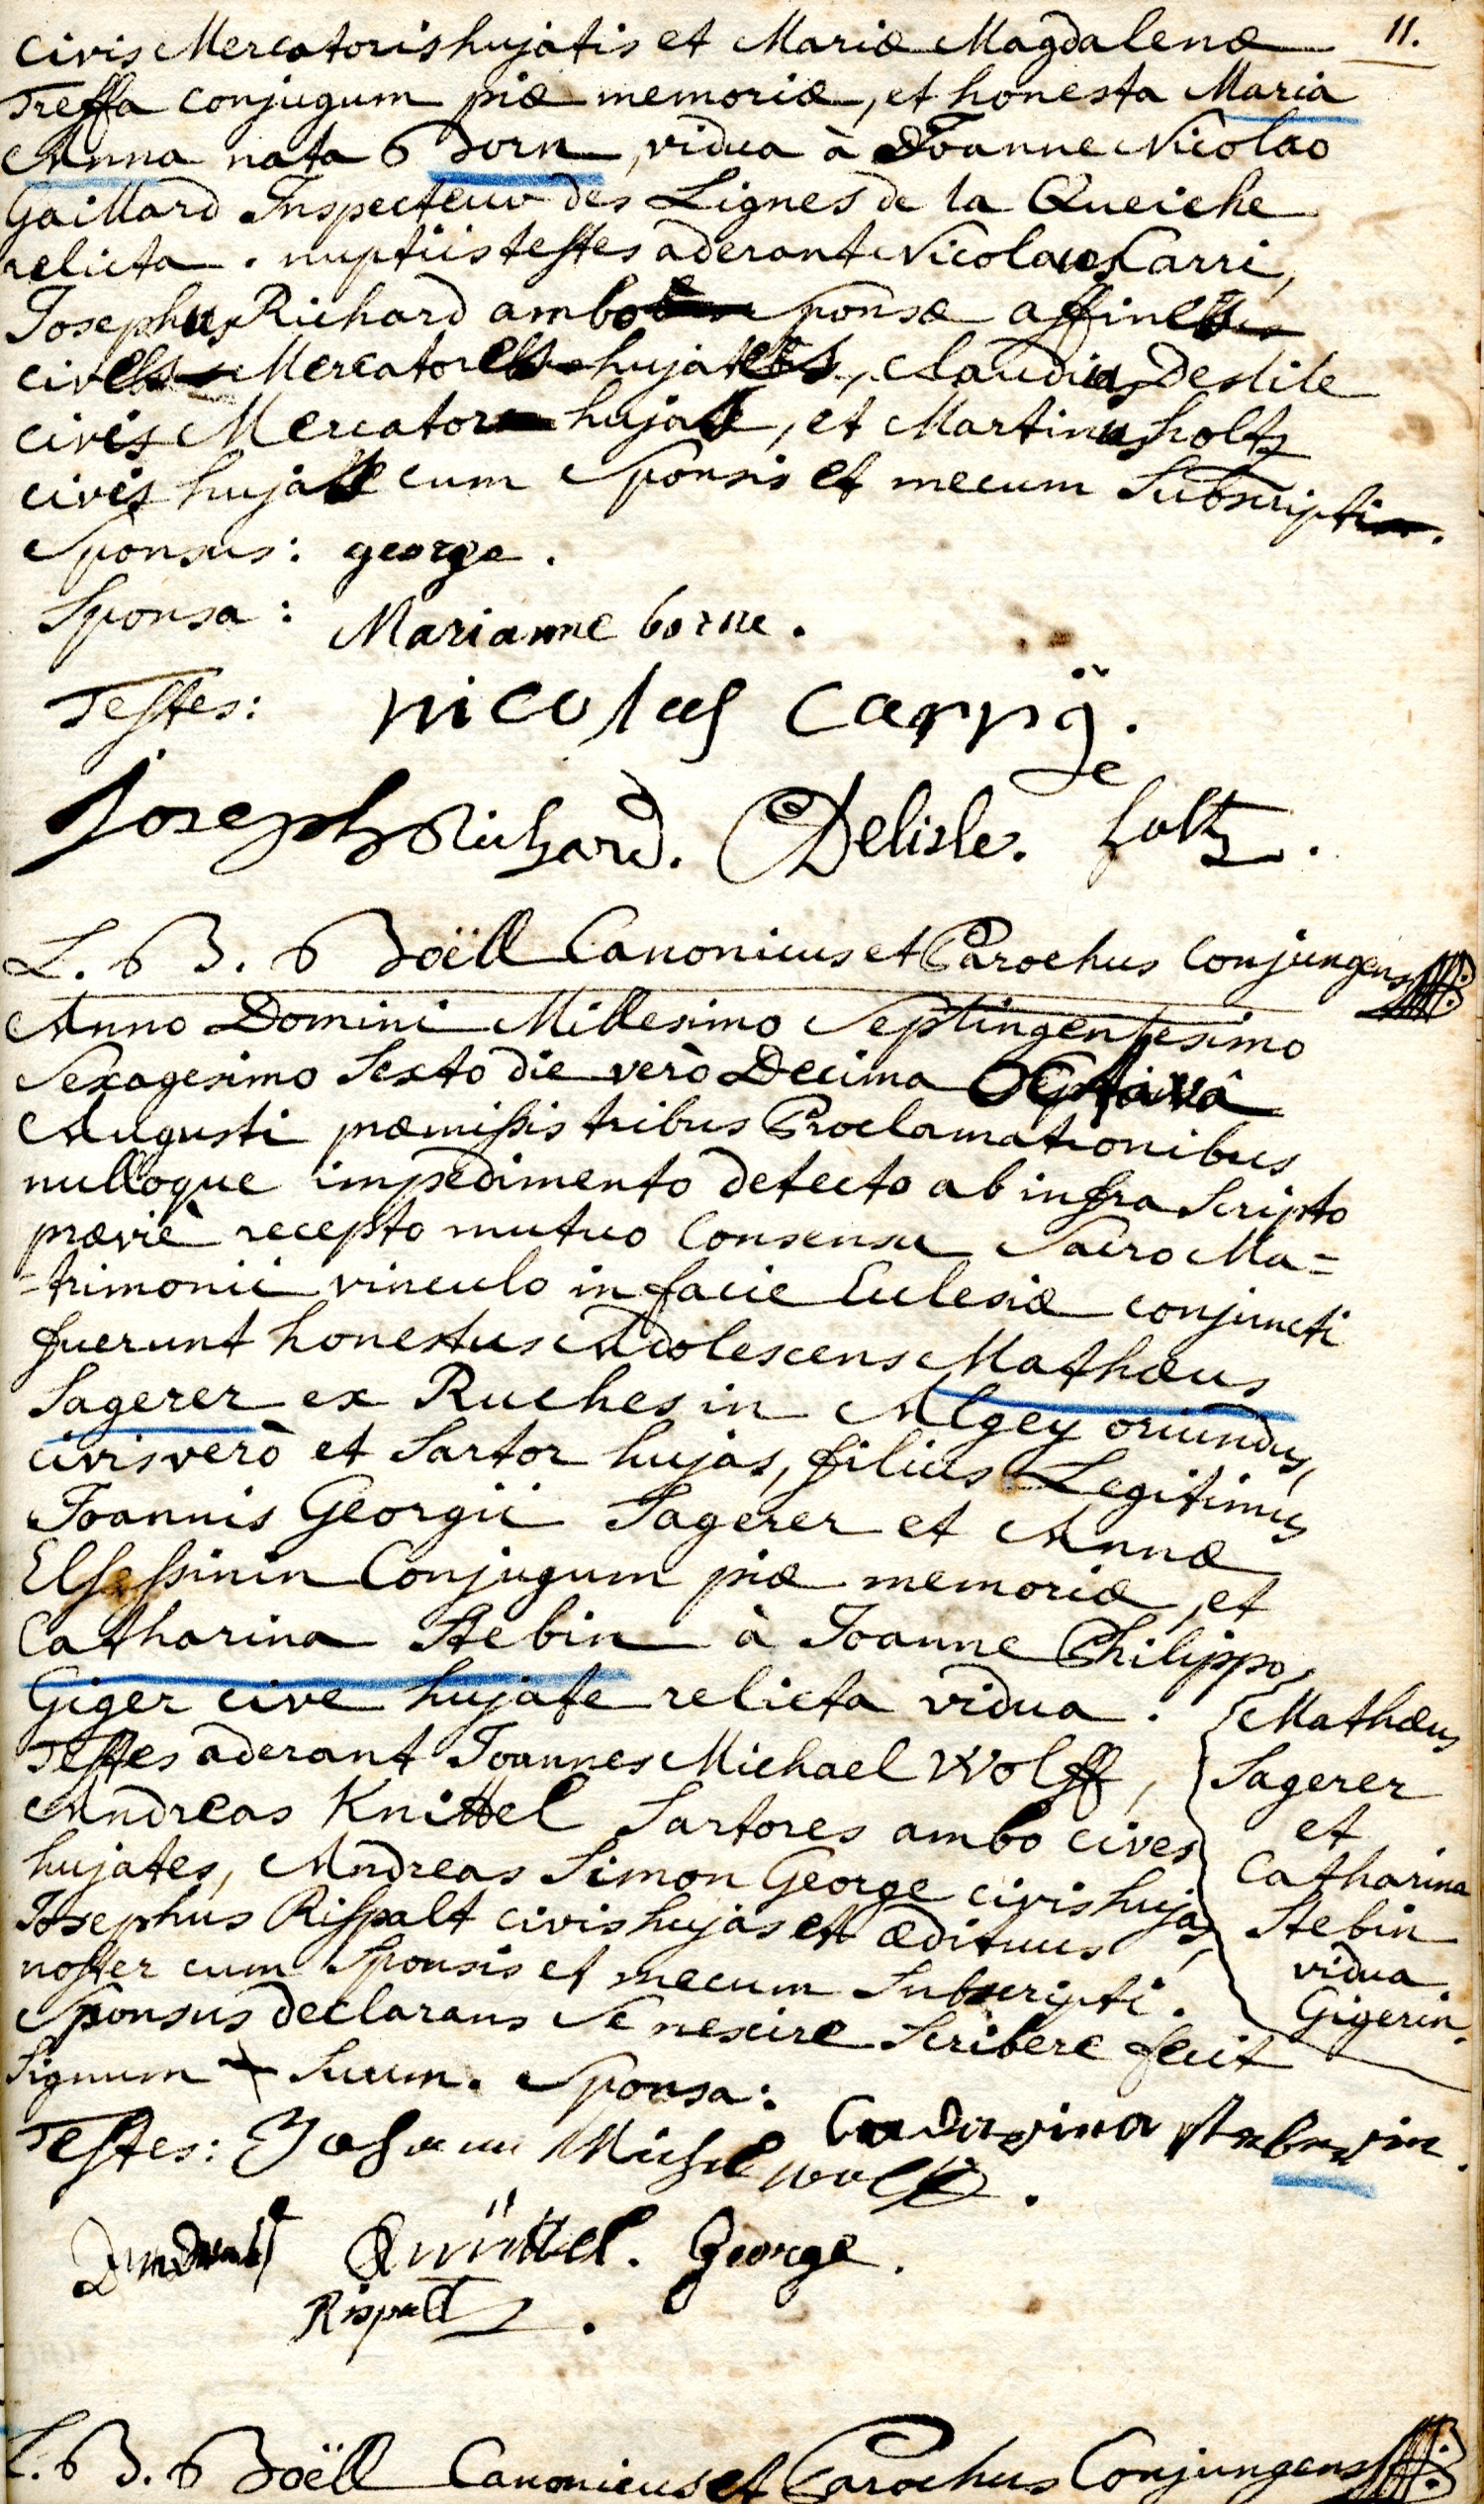 11.
civis Mercatoris hujatis et Mariæ Magdalenæ
Treffa conjugum piæ memoriæ, et honesta Maria
Anna nata Born, vidua à Joanne Nicolao
Gaillard Inspecteur des Lignes de la Queiche
relicta. nuptiis testes aderant Nicolaus Carri,
Josephus Richard ambo Sponsæ affines
cives Mercatores hujates, Claudius Deslile
civis Mercator hujas, et Martinus holtz
civis hujas cum Sponsis et mecum Subscripti.
Sponsus: george.
Sponsa: Marianne borne.
Testes: nicolas carrij.
Joseph Richard. Delisle. holtz.
L. B. Boëll Canonicus et Parochus Conjungens
Anno Domini Millesimo Septingentesimo
Sexagesimo Sexto die verò Decima Octavâ
Augusti præmissis tribus Proclamationibus
nulloque impedimento detecto ab infra Scripto
præviè recepto mutuo Consensu Sacro Ma=
=trimonii vinculo in facie Ecclesiæ conjuncti
fuerunt honestus Adolescens Mathæus
Sagerer ex Ruches in Algey oriundus,
civis verò et Sartor hujas, filius Legitimus
Joannis Georgii Sagerer et Annæ
Elsessinin Conjugum piæ memoriæ, et
Catharina Stebin à Joanne Philippo
Giger cive hujate relicta vidua.
Testes aderant Joannes Michael Wolff,
Andreas Knittel Sartores ambo cives
hujates, Andreas Simon George civis hujas,
Josephus Rispalt civis hujas et ædituus
noster cum Sponsis et mecum Subscripti.
Sponsus declarans Se nescire Scribere fecit
Signum + Suum. Sponsa:
Mathæus
Sagerer
et
Catharina
Stebin
vidua
Gigerin.
Testes: Johann Michel wolff.
Knittel. George.
Rispalt.
L. B. Boëll Canonicus et Parochus Conjungens